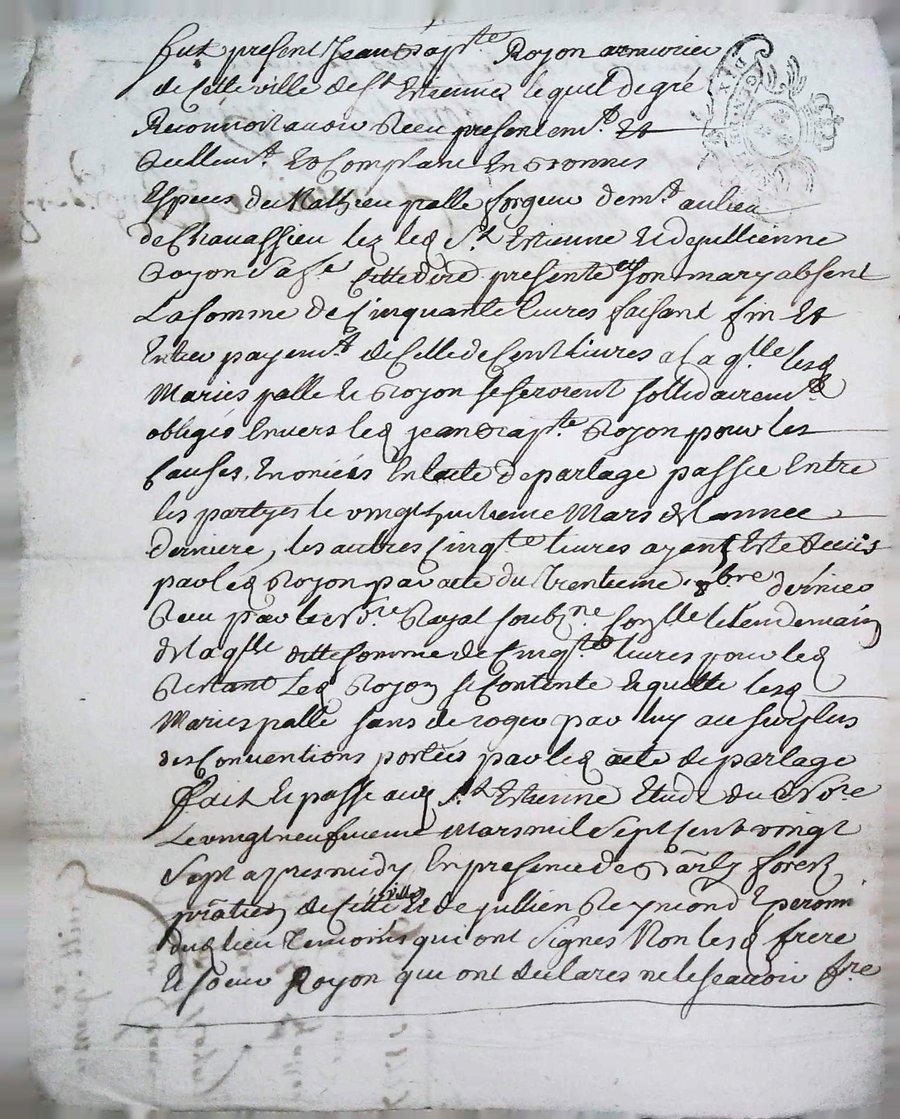 fut present Jean Bapte Royon armurier
de cette ville de St Etienne lequel de gré
Reconnoit avoir Receu presentemt Et
Reellemt Et Comptant En bonnes
Especes de Mathieu palle forgeur demt au lieu
de Chavassieu lez led St Etienne Et de Jullienne
Royon sa fe cette dere presente et son mary absent
La somme de Cinquante livres faisant fin Et
Entier payemt de celle de Cent livres a la qlle lesd
Maries palle Et Royon se seroient sollidairemt
obligés Envers led jean Bapte Royon pour les
Causes Enoncées En lacte de partage passée Entre
les partyes le vingt huitieme Mars de lannee
derniere, les autres Cinqte livres ayent Esté Receues
par led Royon par acte du trentieme 8bre dernier
Receu par le Nore Royal soubzne Conlle le lendemain
de laqlle ditte somme de Cinqte livres pour led
Restant Led Royon se Contente Et quitte lesd
Maries palle sans deroger par luy au surplus
des Conventions portées par led acte de partage
Fait Et passé aud St Etienne Etude du Nore
Le vingt neufvieme Mars mil Sept Cent vingt
Sept apres midy En presence de forest
pratien de cette ville Et de Jullien Reymond Eperonnier
dud lieu temoins qui ont signés Non lesd frere
Et soeur Royon qui ont declares ne le scavoir fre
GEN. DE
DIX